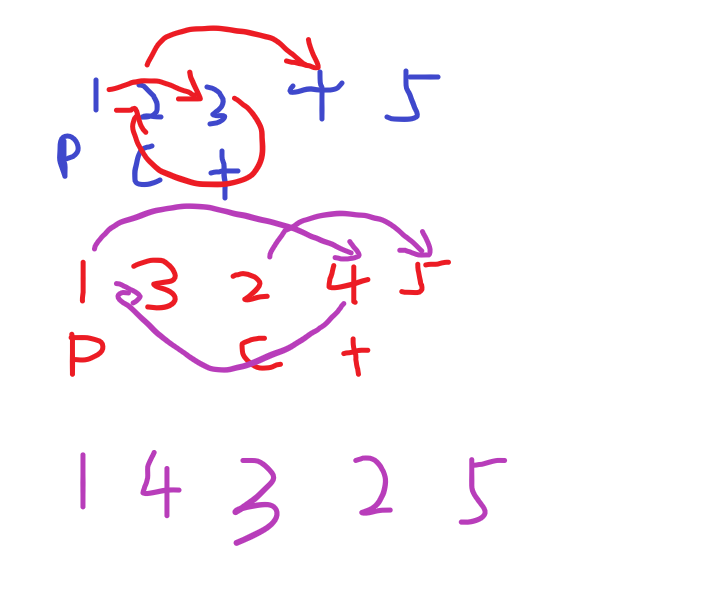 1 2 3 4 5
p c t
1 3 2 4 5
p c t
1 4 3 2 5